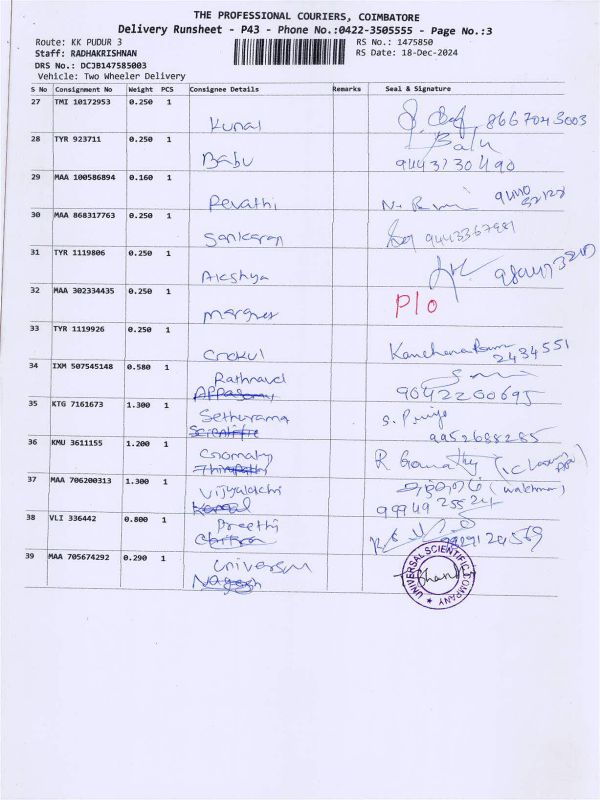 THE PROFESSIONAL COURIERS, COIMBATORE
Delivery Runsheet - P43 - Phone No.:0422-3505555 - Page No.:3
Route: KK PUDUR 3 RS No.: 1475850
Staff: RADHAKRISHNAN RS Date: 18-Dec-2024
DRS No.: DCJB147585003
Vehicle: Two Wheeler Delivery
S No Consignment No Weight PCS Consignee Details Remarks Seal & Signature
27 TMI 10172953 0.250 1
Kunal 8667043003
28 TYR 923711 0.250 1 Balu
Babu 9443730490
29 MAA 100586894 0.160 1
Revathi
30 MAA 868317763 0.250 1
Sankaran 9443367981
31 TYR 1119806 0.250 1
Akshya
32 MAA 302334435 0.250 1 P/o
33 TYR 1119926 0.250 1
Gokul 2434551
34 IXM 507545148 0.580 1
Rathnavel
Appasamy 9042200695
35 KTG 7161673 1.300 1 S. Priya
Sethurama
Scientific 9952688285
36 KMU 3611155 1.200 1
Gomathy R Gomathy
Thirupathi
37 MAA 706200313 1.300 1 (watchman)
Vijyalakchi 99949 25524
38 VLI 336442 0.800 1
Preethi
39 MAA 705674292 0.290 1
Universal
Nagesh
UNIVERSAL SCIENTIFIC COMPANY